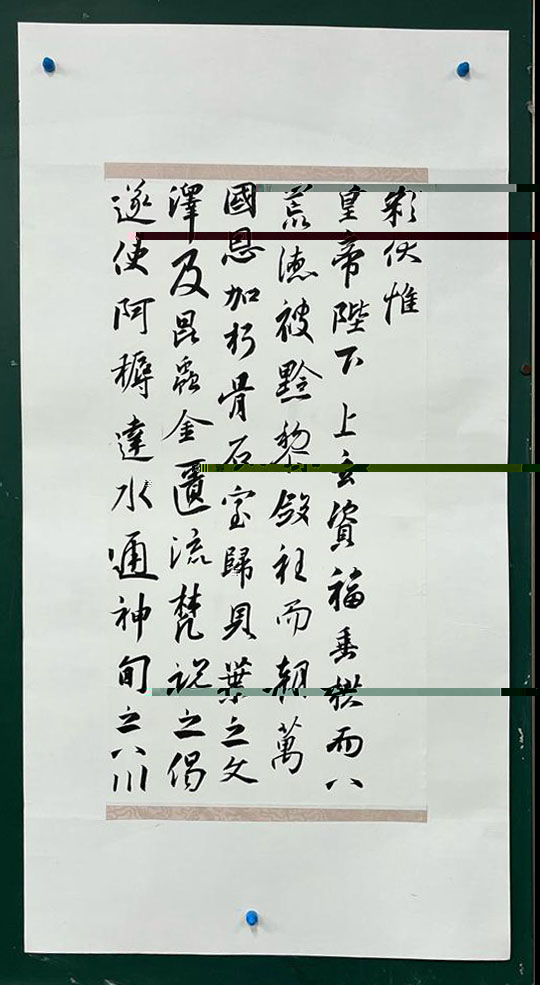 彩伏惟
皇帝陛下上玄資福垂拱而八
荒德被黔黎斂衽而朝萬
國恩加朽骨石室歸貝葉之文
澤及昆蟲金匱流梵說之偈
遂使阿耨達水通神甸之八川